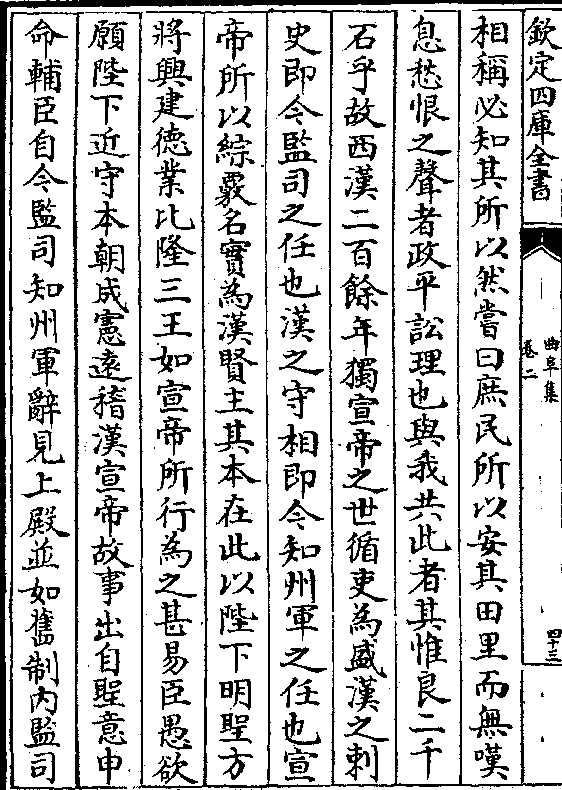 欽定四庫全書
曲阜集
卷二
四十三
相稱必知其所以然嘗曰庶民所以安其田里而無嘆
息愁恨之聲者政平訟理也與我共此者其惟良二千
石乎故西漢二百餘年獨宣帝之世循吏為盛漢之刺
史即今監司之任也漢之守相即今知州軍之任也宣
帝所以綜覈名實為漢賢主其本在此以陛下明聖方
將興建德業比隆三王如宣帝所行為之甚易臣愚欲
願陛下近守本朝成憲遠稽漢宣帝故事出自聖意申
命輔臣自今監司知州軍辭見上殿並如舊制內監司